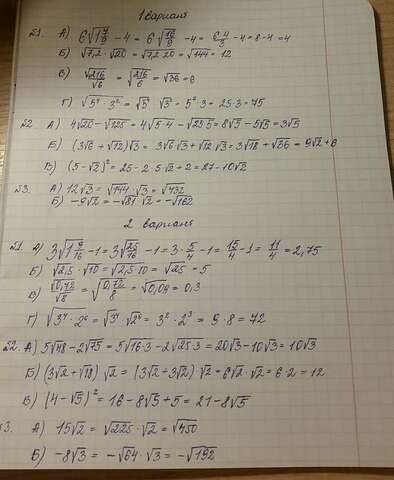 1 вариант
№1. А) 6√1 7/9 - 4 = 6√16/9 - 4 = 6·4/3 - 4 = 8 - 4 = 4
Б) √7,2 · √20 = √7,2·20 = √144 = 12
В) √216/√6 = √216/6 = √36 = 6
Г) √5⁴·3² = √5⁴ · √3² = 5²·3 = 25·3 = 75
№2. А) 4√20 - √125 = 4√5·4 - √25·5 = 8√5 - 5√5 = 3√5
Б) (3√6 + √12)√3 = 3√6·√3 + √12·√3 = 3√18 + √36 = 9√2 + 6
В) (5 - √2)² = 25 - 2·5√2 + 2 = 27 - 10√2
№3. А) 12√3 = √144·√3 = √432
Б) -9√2 = -√81·√2 = -√162
2 вариант
№1. А) 3√1 9/16 - 1 = 3√25/16 - 1 = 3·5/4 - 1 = 15/4 - 1 = 11/4 = 2,75
Б) √2,5 · √10 = √2,5·10 = √25 = 5
В) √0,72/√8 = √0,72/8 = √0,09 = 0,3
Г) √3⁴·2⁶ = √3⁴·√2⁶ = 3²·2³ = 9·8 = 72
№2. А) 5√48 - 2√75 = 5√16·3 - 2√25·3 = 20√3 - 10√3 = 10√3
Б) (3√2 + √18)√2 = (3√2 + 3√2)√2 = 6√2·√2 = 6·2 = 12
В) (4 - √5)² = 16 - 8√5 + 5 = 21 - 8√5
3. А) 15√2 = √225·√2 = √450
Б) -8√3 = -√64·√3 = -√192